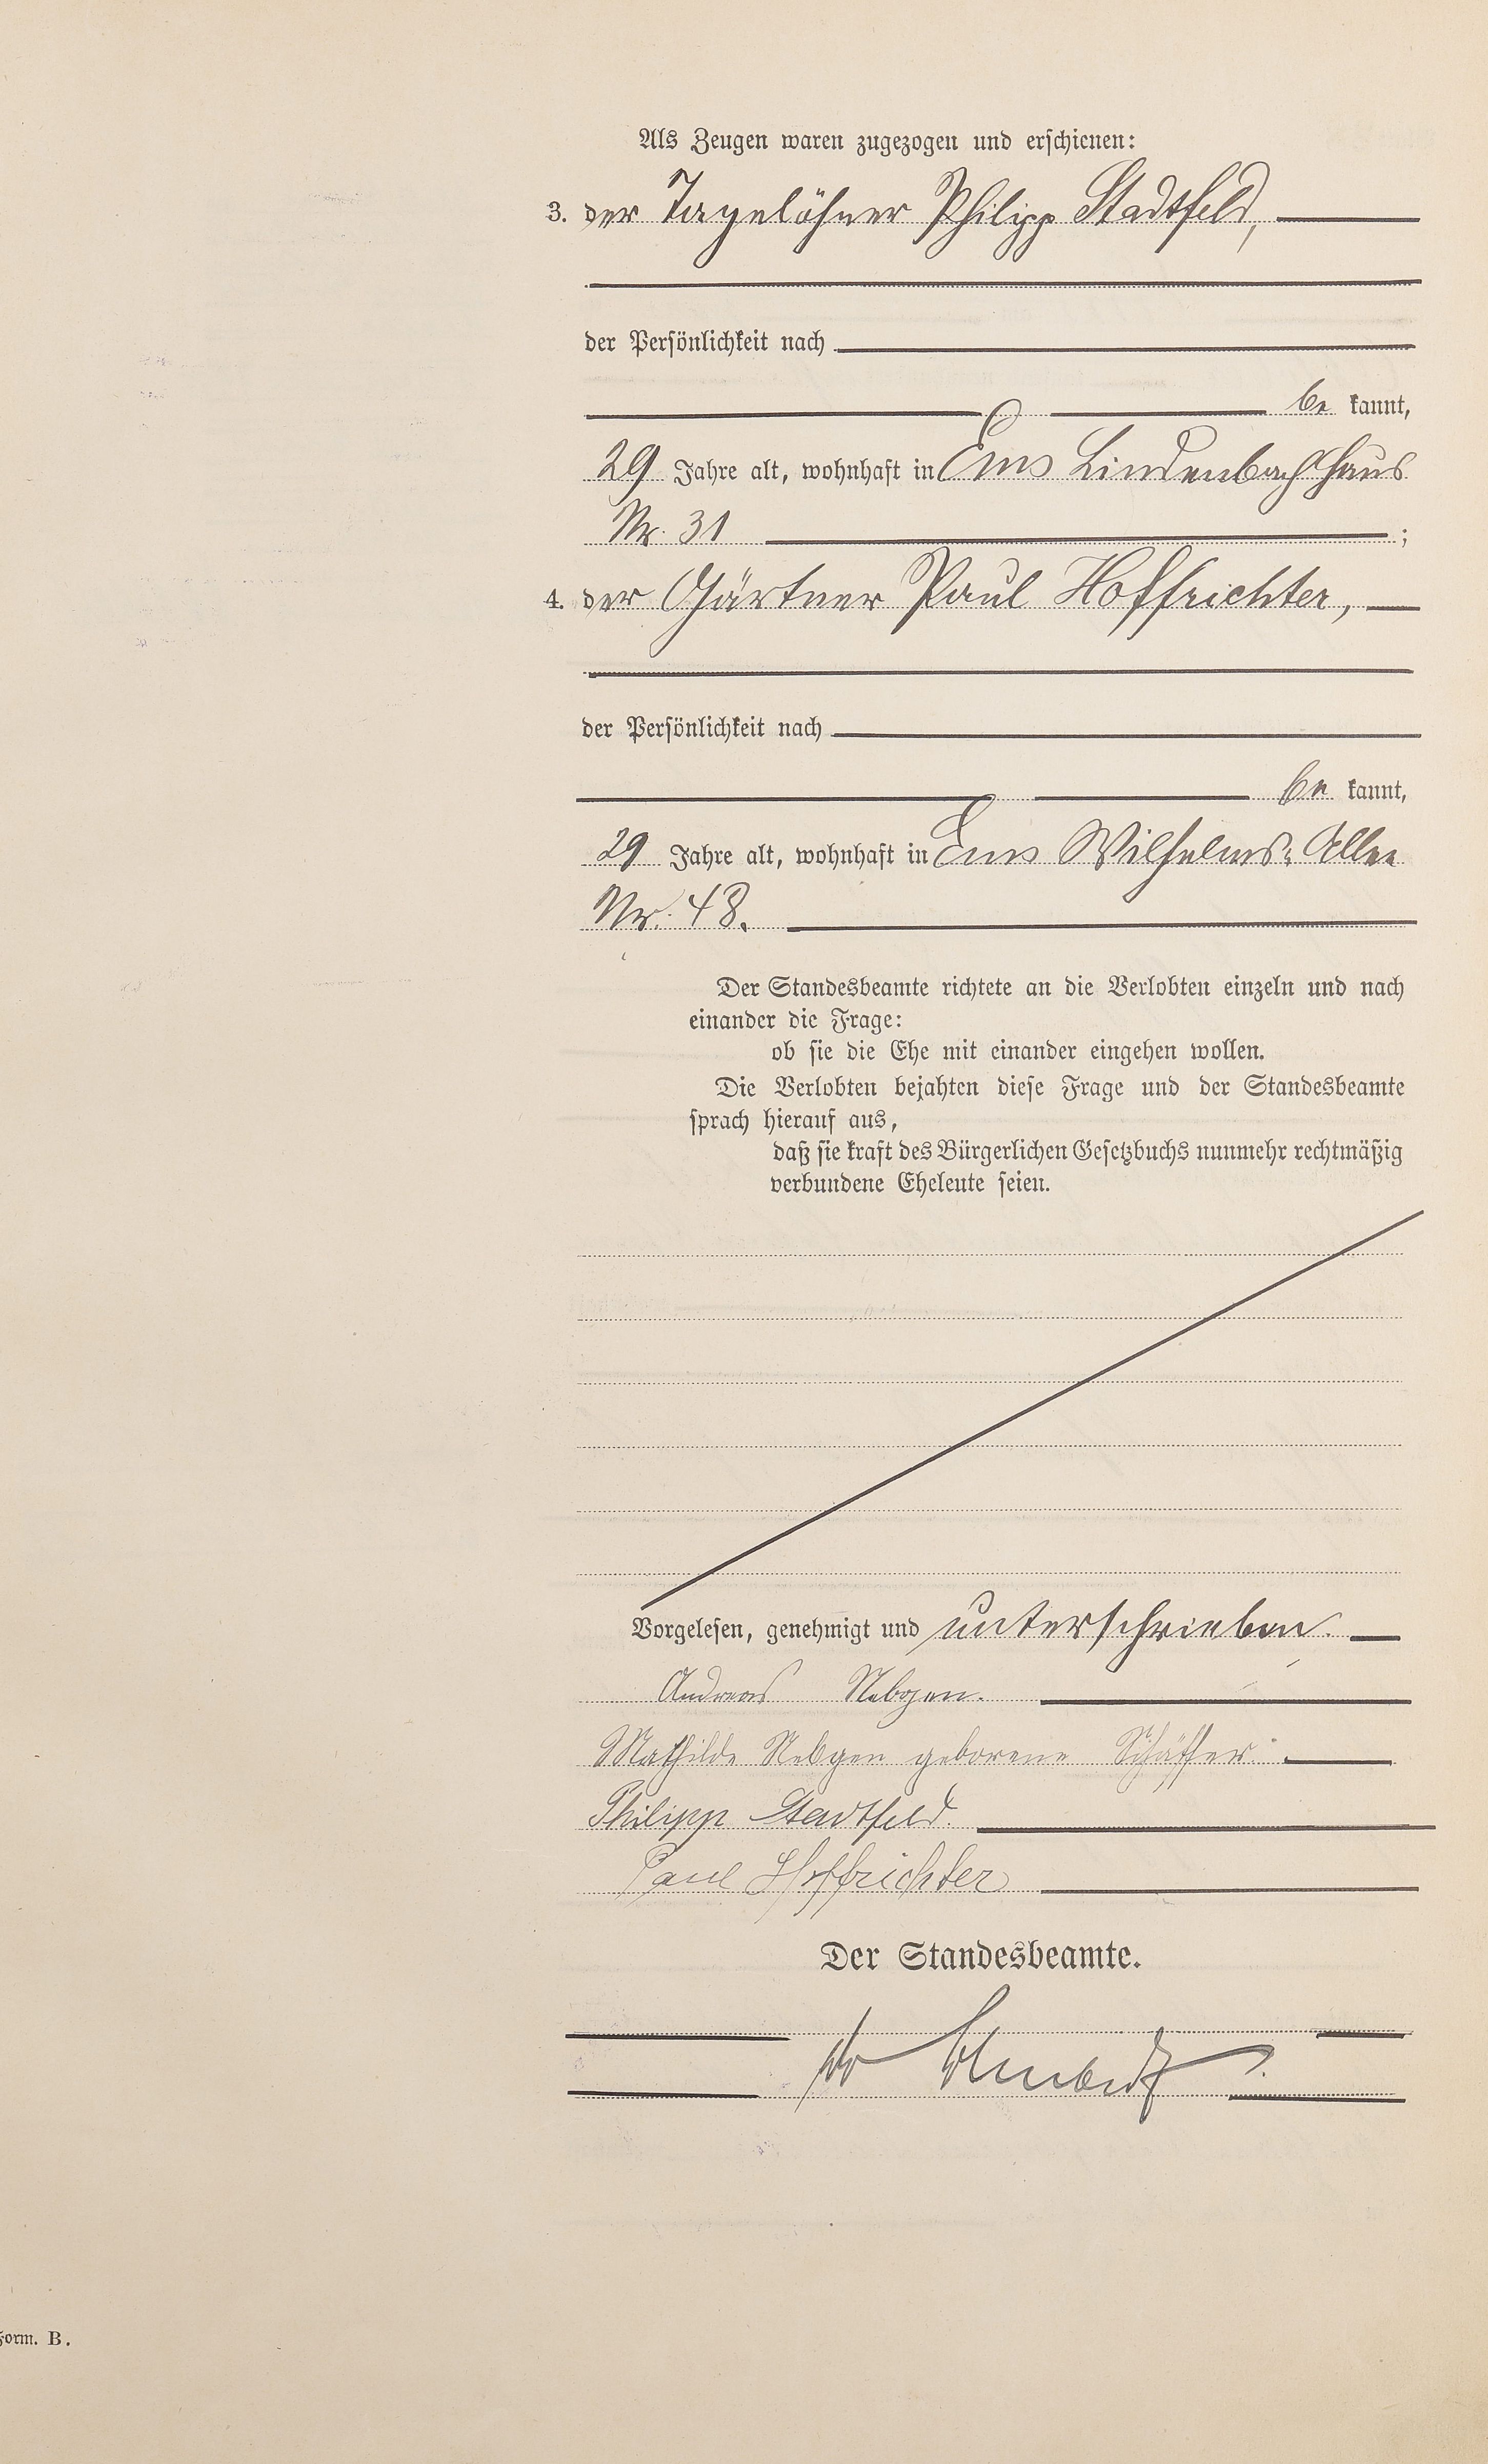 Als Zeugen waren zugezogen und erschienen:
3. der Tagelöhner Philipp Stadtfeld,
der Persönlichkeit nach
be kannt,
29 Jahre alt, wohnhaft in Ems Lindenbach Haus
Nr. 31 ;
4. der Gärtner Paul Hoffrichter,
der Persönlichkeit nach
be kannt,
29 Jahre alt, wohnhaft in Ems Wilhelms-Allee
Nr. 48.
Der Standesbeamte richtete an die Verlobten einzeln und nach
einander die Frage:
ob sie die Ehe mit einander eingehen wollen.
Die Verlobten bejahten diese Frage und der Standesbeamte
sprach hierauf aus,
daß sie kraft des Bürgerlichen Gesetzbuchs nunmehr rechtmäßig
verbundene Eheleute seien.
Vorgelesen, genehmigt und unterschrieben.
Andreas Nebgen.
Mathilde Nebgen geborene Schäffer.
Philipp Stadtfeld.
Paul Hoffrichter
Der Standesbeamte.
Form. B.